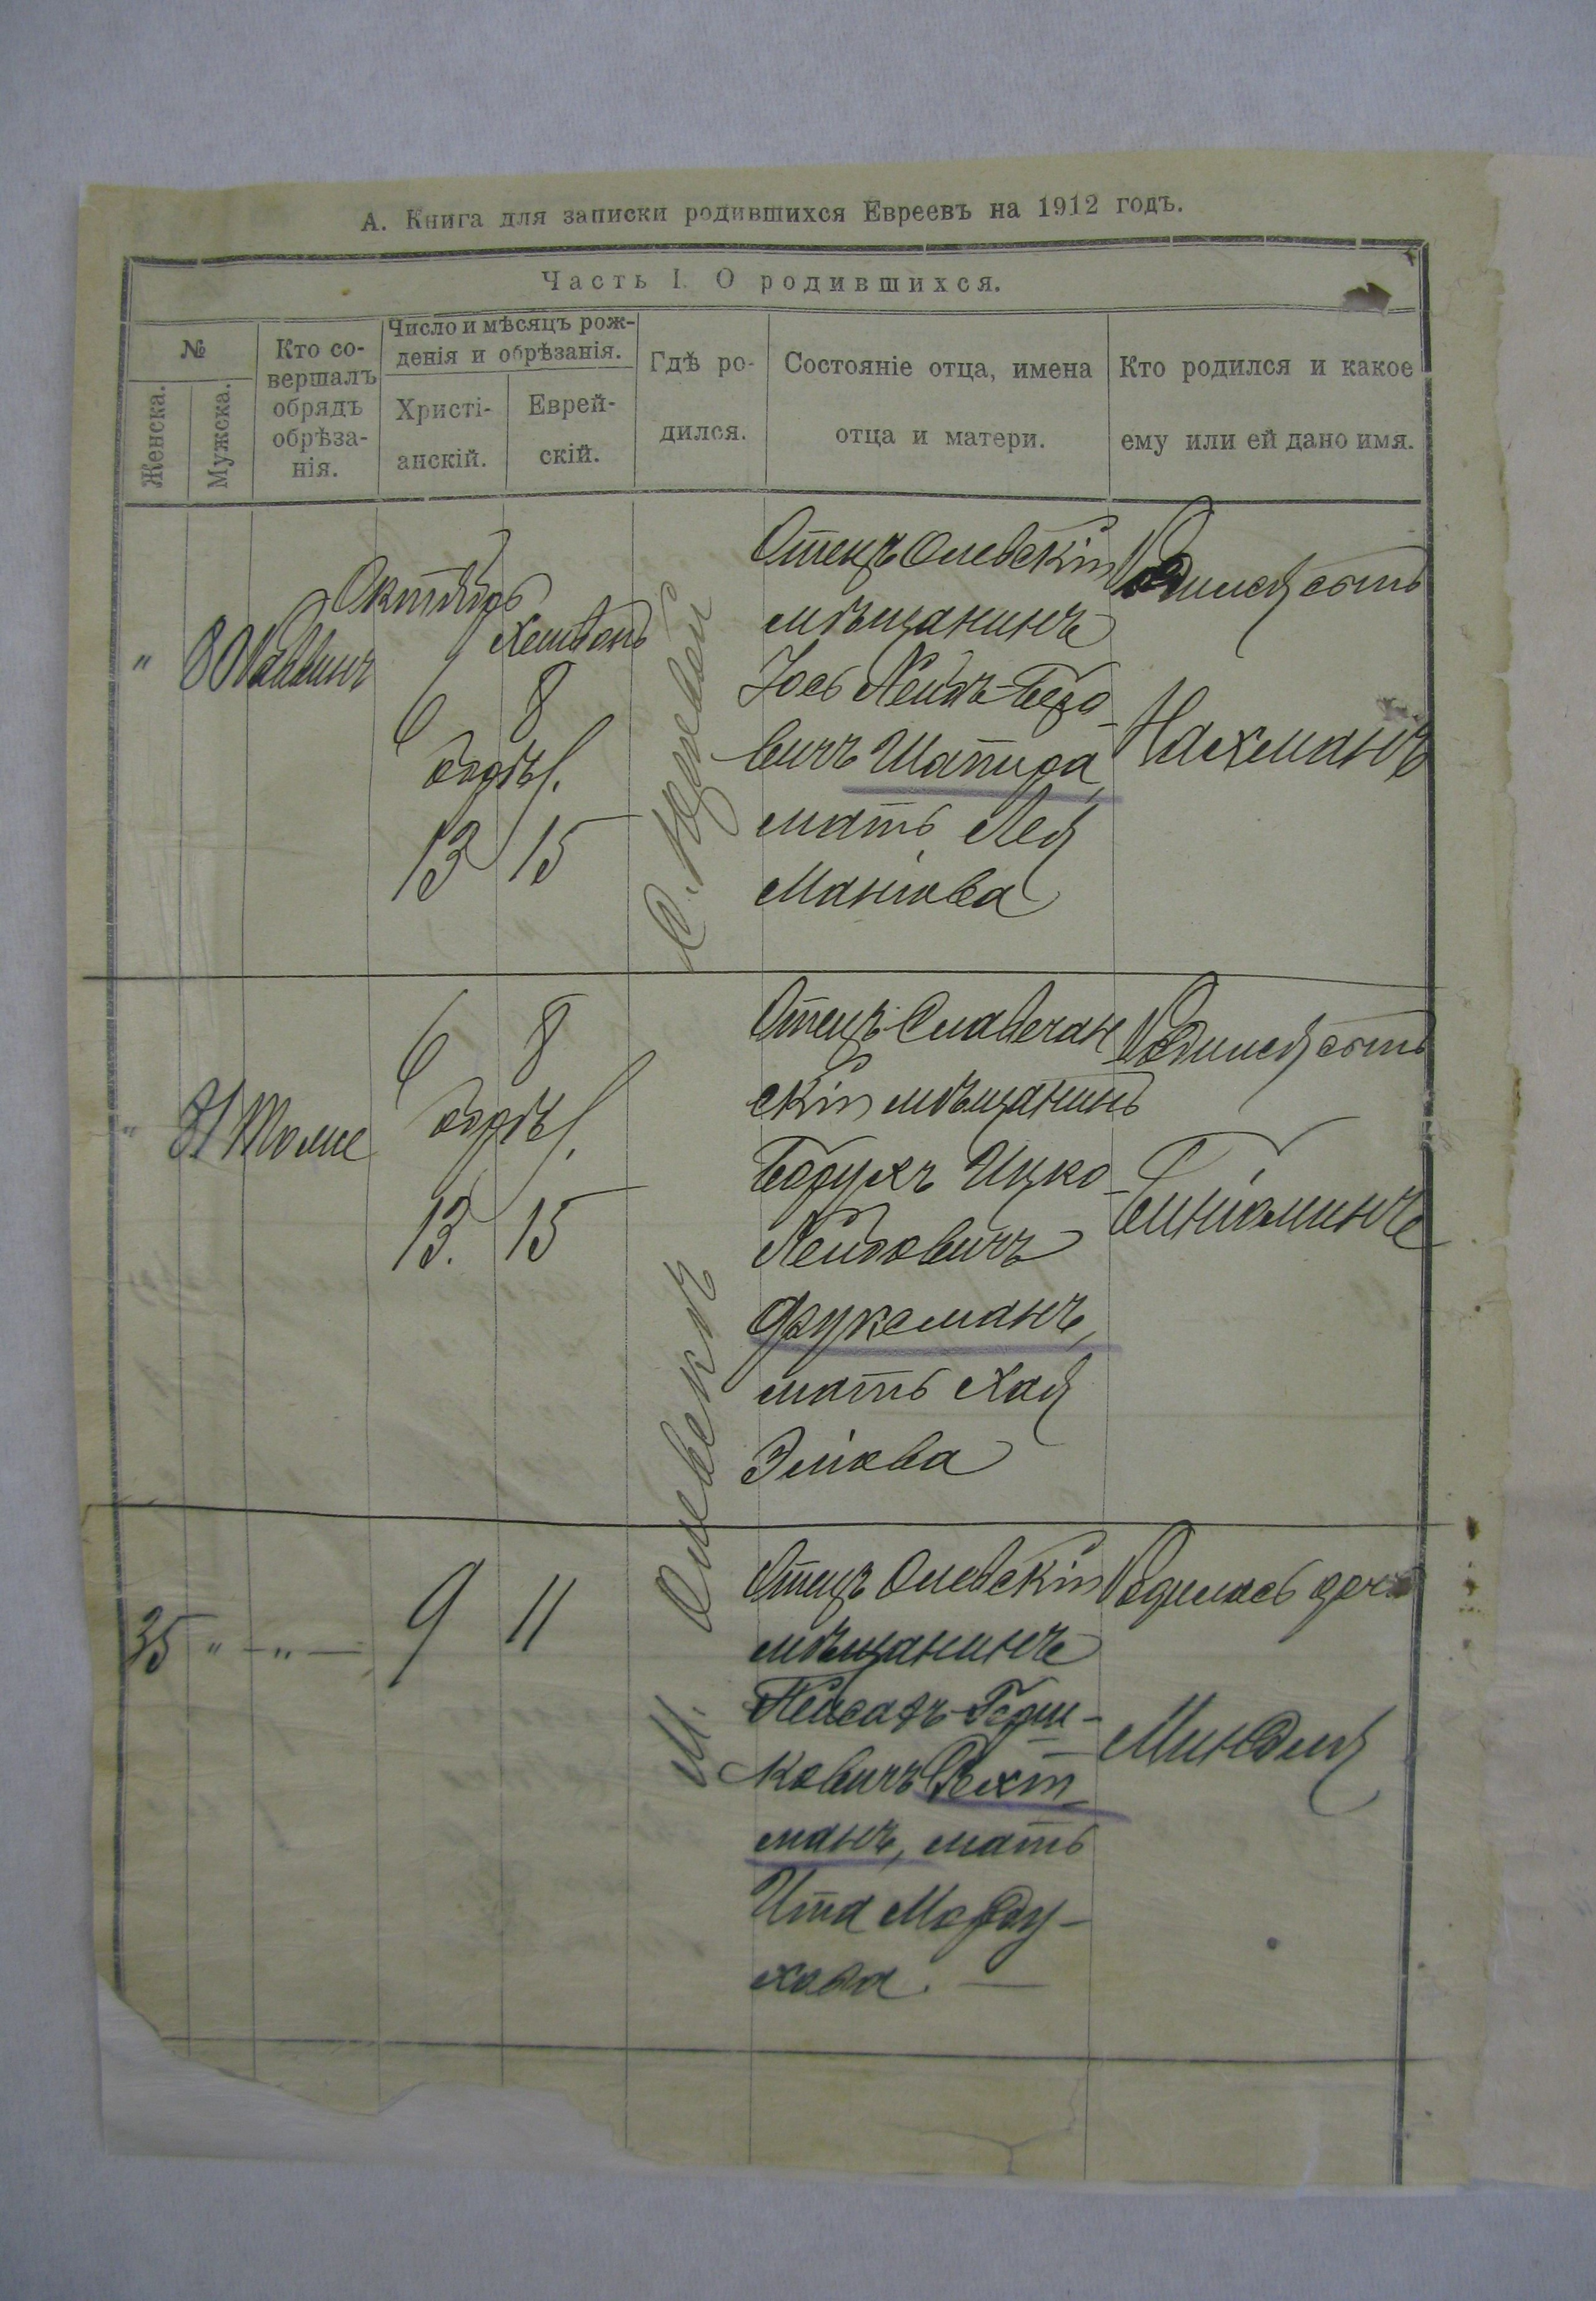 А. Книга для записки родившихся Евреевъ на 1912 годъ.
Часть I. О родившихся.
№
Женска.
Мужска.
Кто со-
вершалъ
обрядъ
обрѣза-
нія.
Число и мѣсяцъ рож-
денія и обрѣзанія.
Христі-
анскій.
Еврей-
скій.
Гдѣ ро-
дился.
Состояніе отца, имена
отца и матери.
Кто родился и какое
ему или ей дано имя.
" 80 Раввинъ
Октябрь
Хешвонъ
6 8
обрѣз.
13 15
Отецъ Олевскій
мѣщанинъ
Іось Лейбъ-Беро-
вичъ Шапира,
мать Лея
Маніова
Родился сынъ
Нахманъ
" 81 Толпе
6 8
обрѣз.
13. 15
Отецъ Славечан
скій мѣщанинъ
Борухъ Ицко-
Лейбовичъ
Фуксманъ,
мать Хая
Эліова
Родился сынъ
Биніоминъ
35 " — " —
9 11
М. Олевскъ
Отецъ Олевскій
мѣщанинъ
Пейсахъ Герш-
ковичъ Вехт-
манъ, мать
Ита Морду-
хова. —
Родилась дочь
Миндля